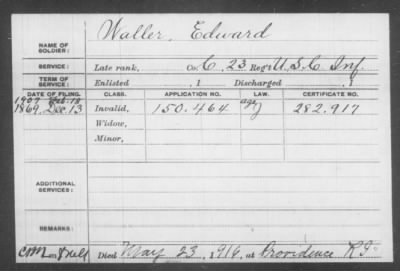 Waller, Edward
NAME OF SOLDIER:
SERVICE: Late rank, Co. C, 23 Reg't U.S.C. Inf.
TERM OF SERVICE: Enlisted , 1 Discharged , 1
DATE OF FILING. CLASS. APPLICATION NO. LAW. CERTIFICATE NO.
1907 Feb. 13
1869, Dec. 13 Invalid, 150.464 age 282.917
Widow,
Minor,
ADDITIONAL SERVICES:
REMARKS:
Died May 23, 1916, at Providence R.I.